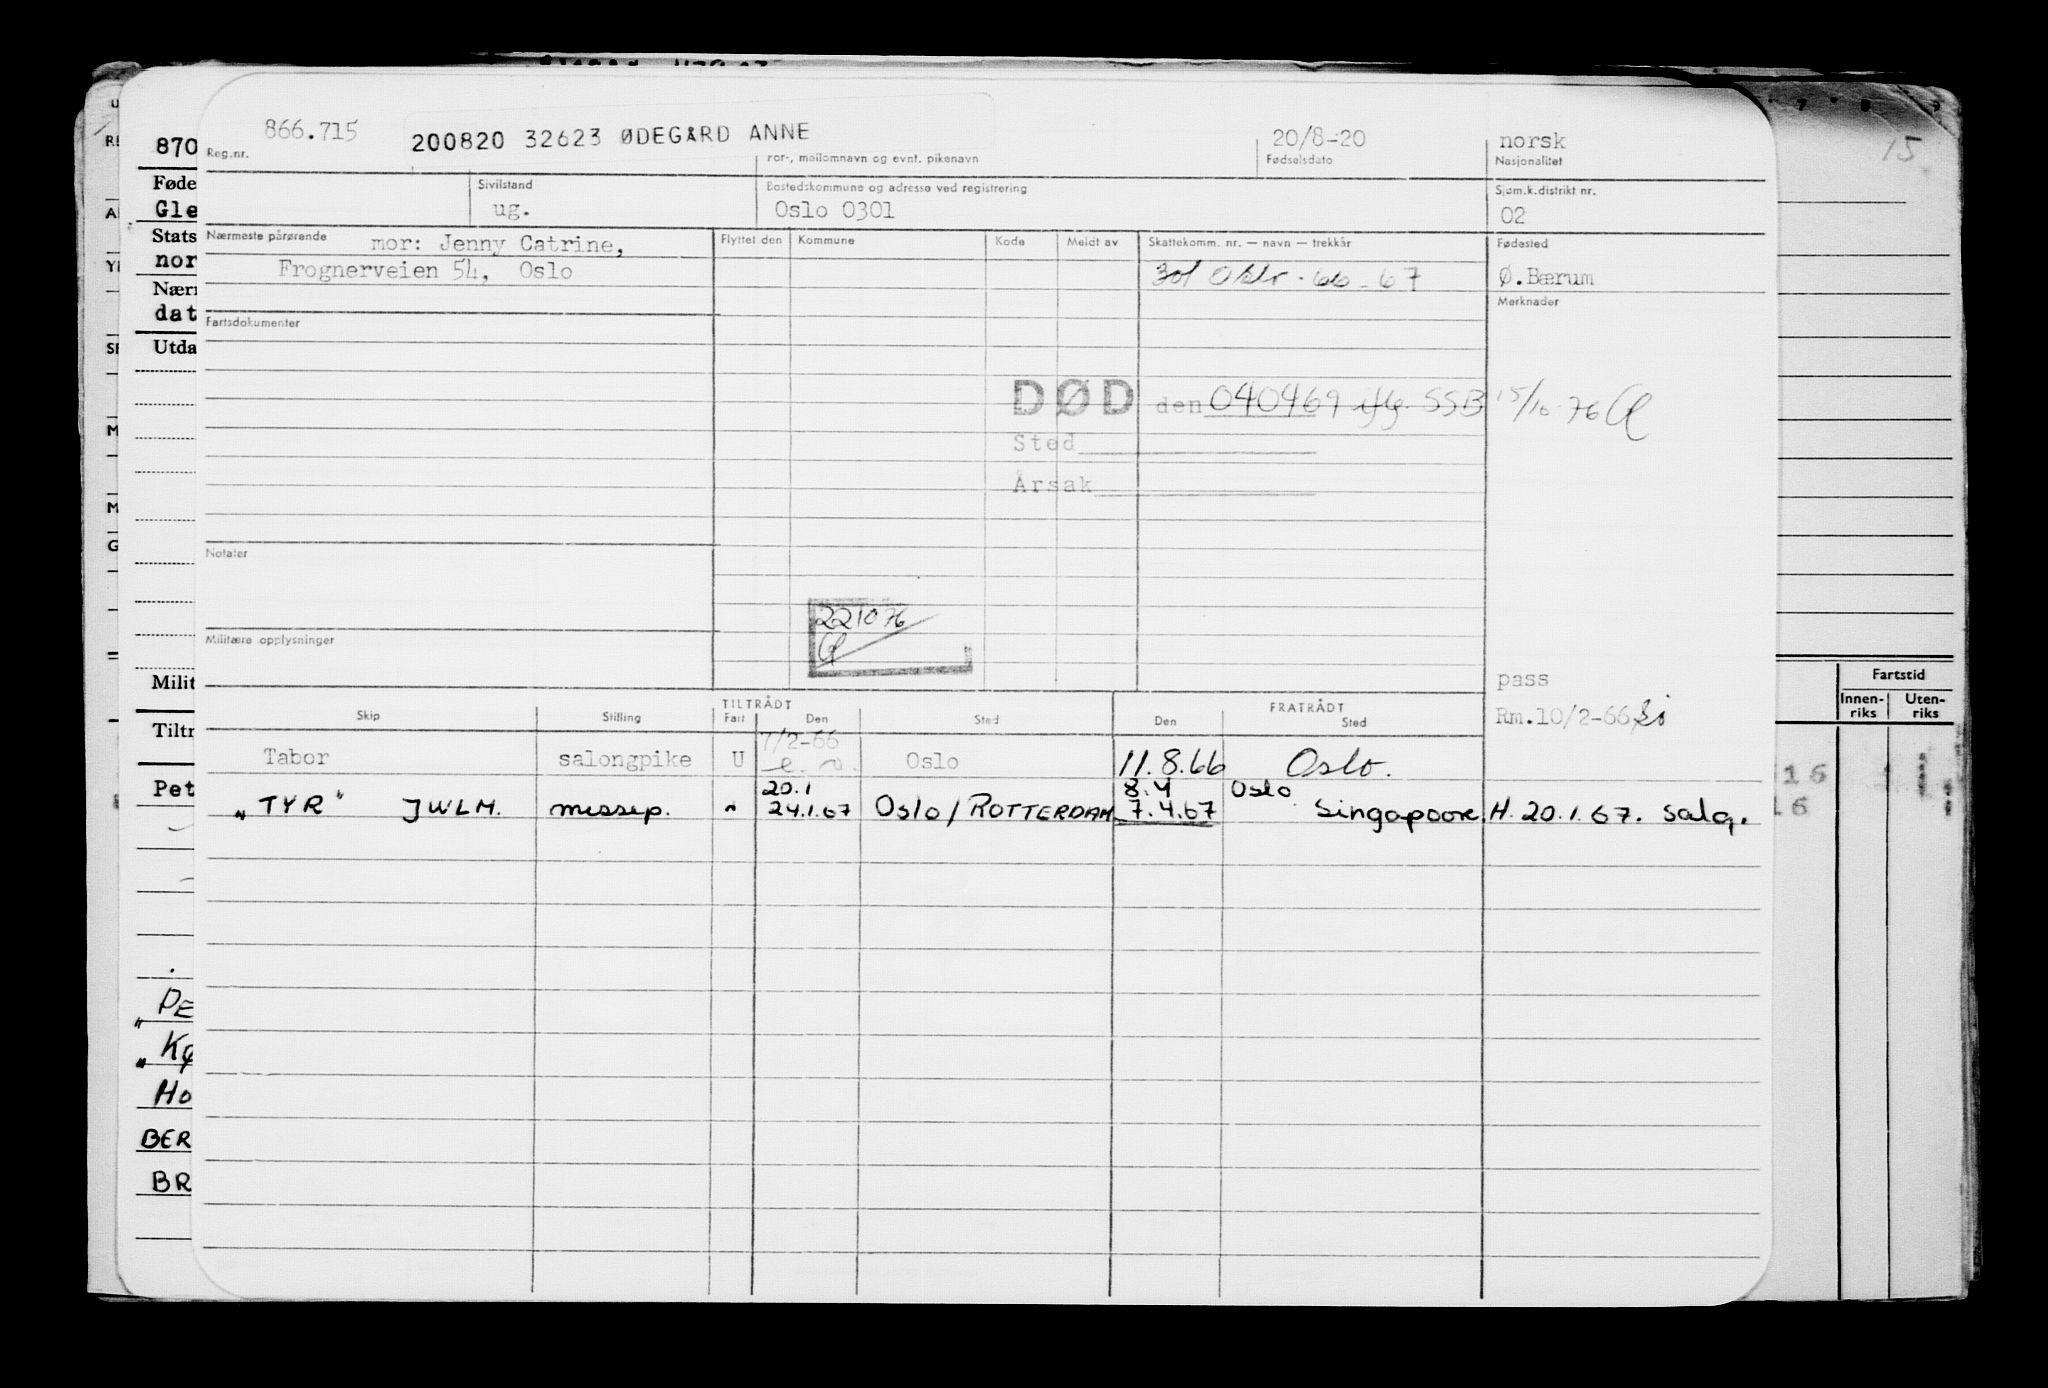 866.715
200820 32623 ØDEGÅRD ANNE
20/8-20
norsk
15
Reg.nr.
For-, mellomnavn og evnt. pikenavn
Fødselsdato
Nasjonalitet
Sivilstand
Bostedskommune og adresse ved registrering
Sjøm.k.distrikt nr.
ug.
Oslo 0301
02
Nærmeste pårørende
mor: Jenny Catrine,
Flyttet den
Kommune
Kode
Meldt av
Skattekomm. nr. — navn — trekkår
Fødested
Frognerveien 54, Oslo
301 Oslo - 66 - 67
Ø.Bærum
Merknader
Fartsdokumenter
DØD den 040469 SSB 15/10-76
Sted
Årsak
Notater
221076
Militære opplysninger
pass
Rm.10/2-66
Skip
Stilling
TILTRÅDT
Fart
Den
Sted
FRATRÅDT
Den
Sted
7/2-66
Tabor salongpike U Oslo 11.8.66 Oslo.
20.1 8.4 Oslo
"TYR" JWLM. messep. " 24.1.67 Oslo / ROTTERDAM 7.4.67 Singapoore H. 20.1.67. salg.
870
Føde
Gle
Stats
nor
Nærr
dat
Utda
Milit
Tiltr
Pet
"PE
"Kø
Ho
BER
BR
Fartstid
Innen-
riks
Uten-
riks
16
16